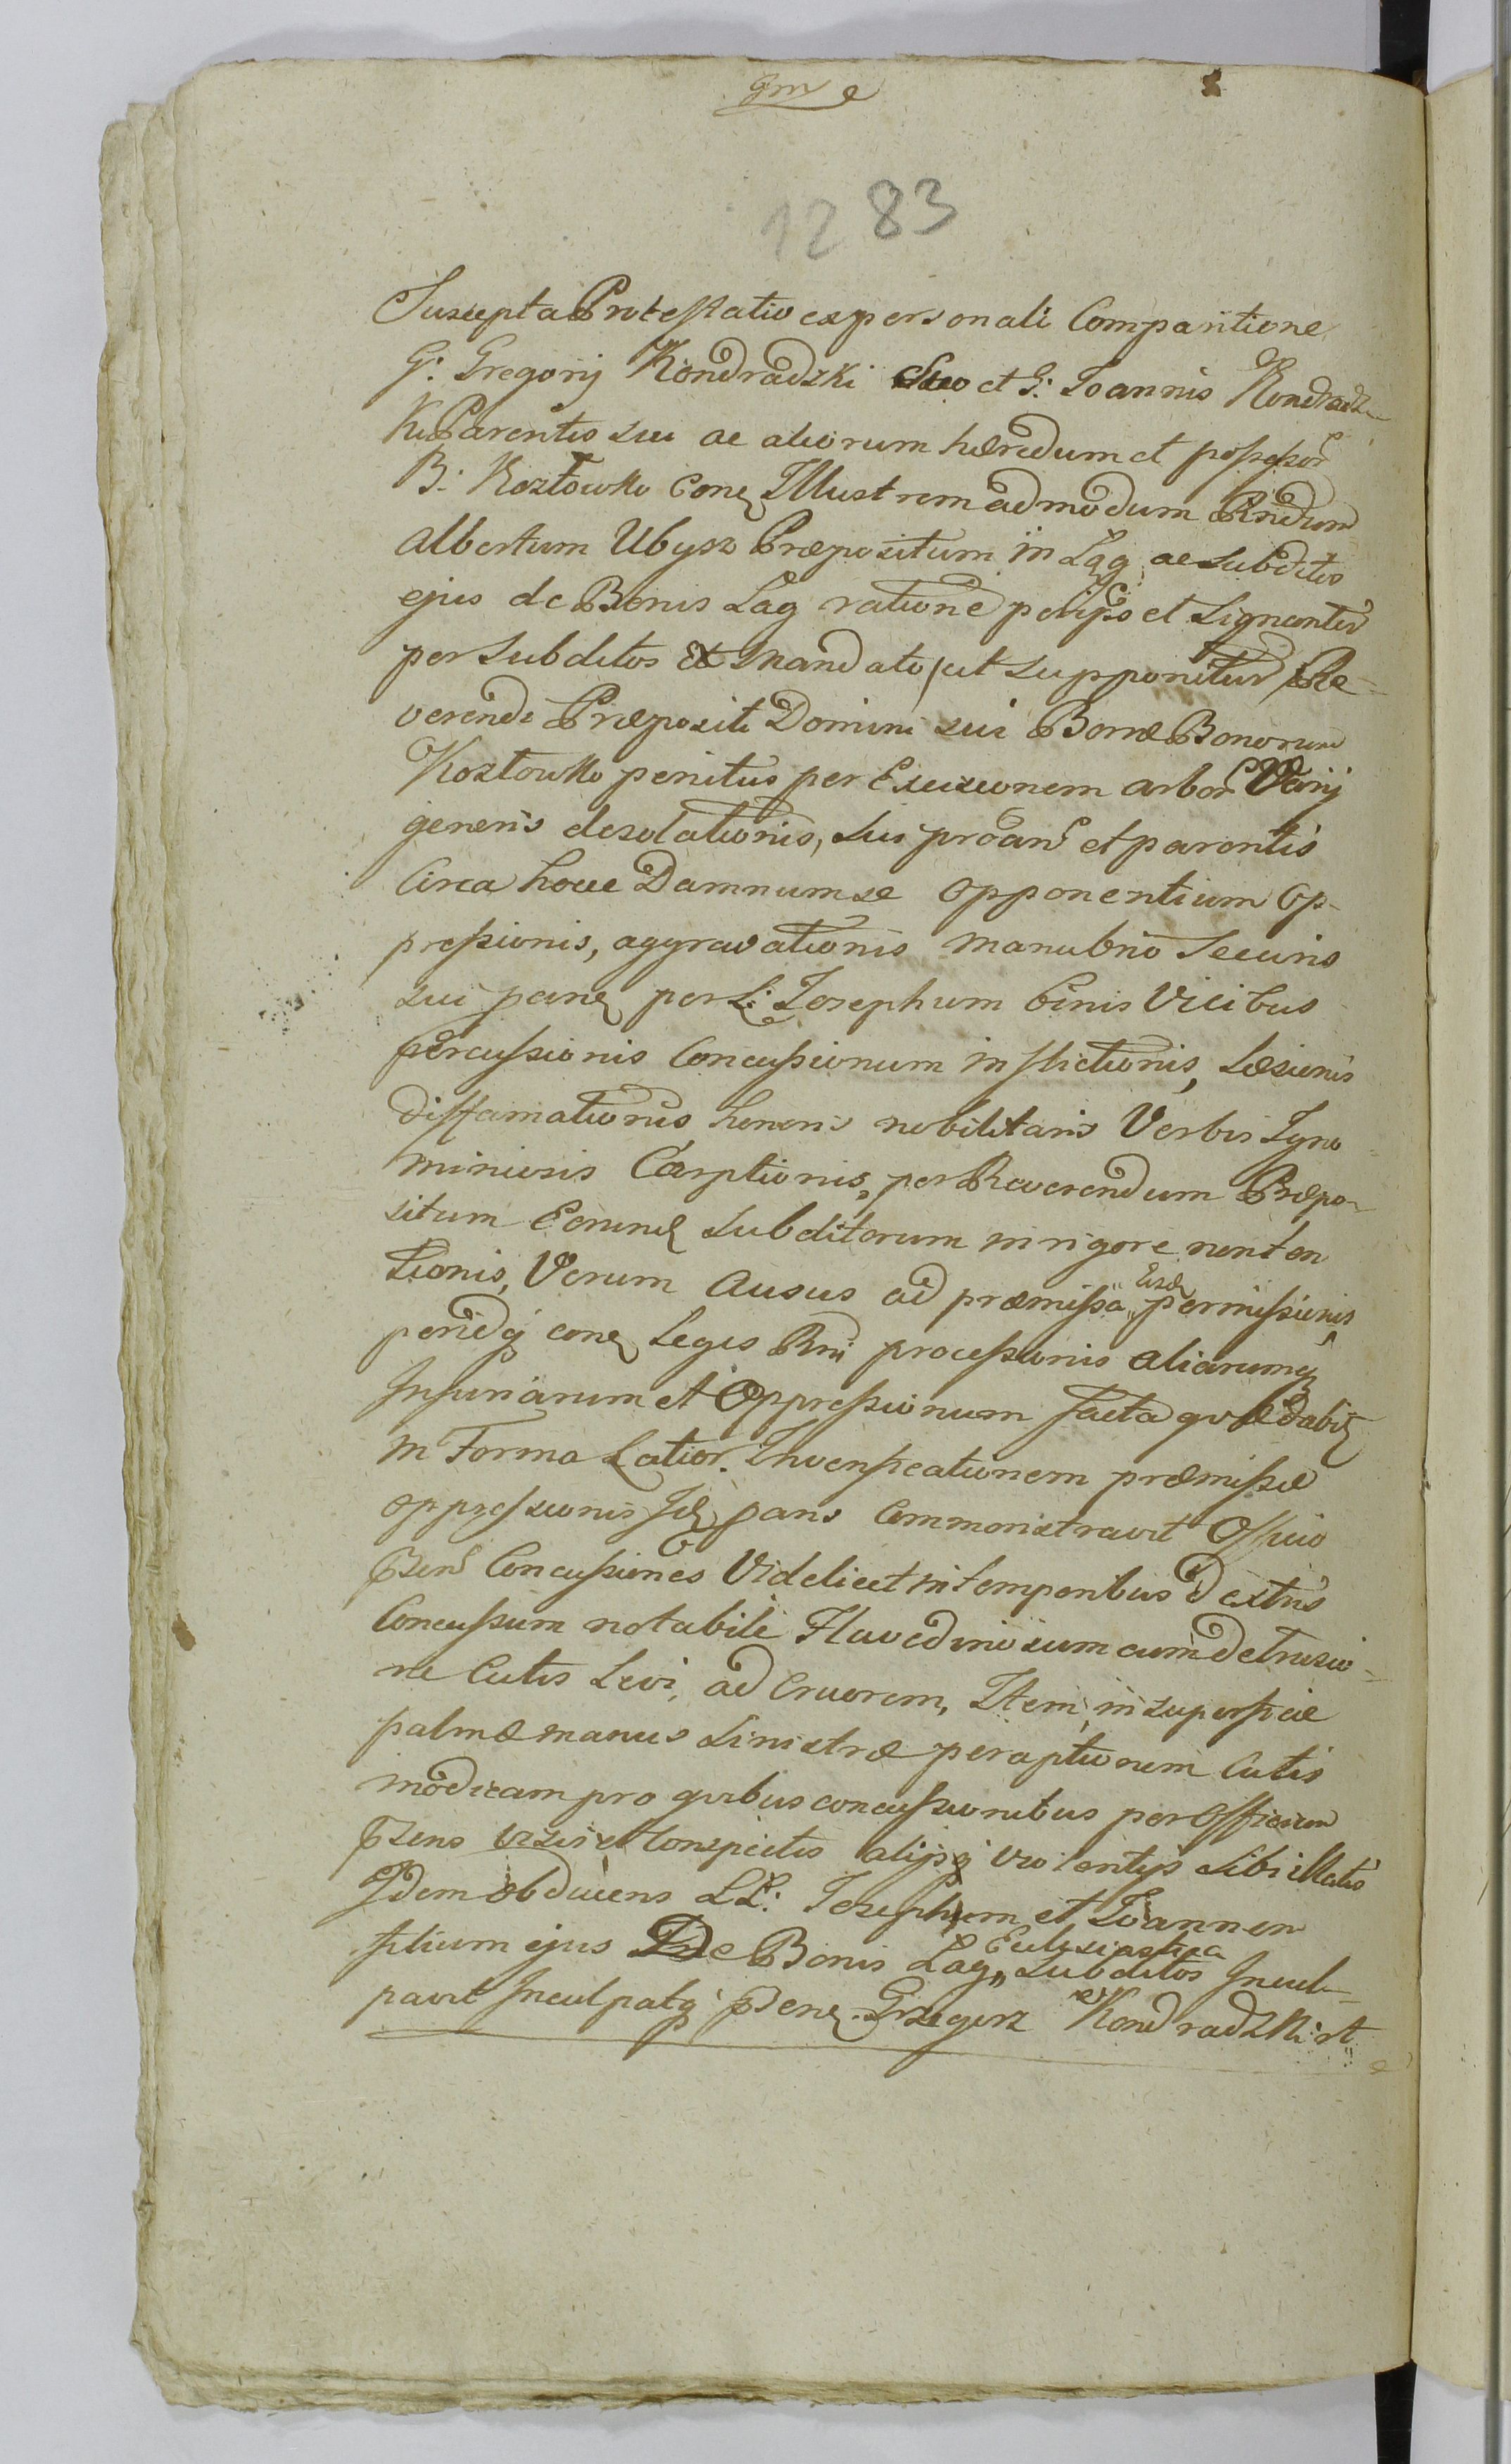 1283
Suscepta Protestatio ex personali Comparitione
G: Gregorij Kondradzki Suo et G: Joannis Kondradz
Ki Parentis sui ac aliorum hæredum et possessor
B: Kozłowko Conq Illustrem admodum Rndum
Albertum Ubysz Præpositum in Łąg ac subditos
ejus de Bonis Łag ratione per ipso et signanter
per subditos Ex Mandato, ut supponitur Re-
verendi Præpositi Domini sui Borræ Bonorum
Kozłowko penitus per Excisionem arbor Varij
generis desolationis, sui proân et parentis
Circa hocce Damnum se opponentium Op-
pressionis, aggravationis manubrio Securis
sui penes per L: Josephum binis Vicibus
percussionis Concussionum inflictionis, Læsionis
diffamationis honoris nobilitaris Verbis Igno
miniosis Carptionis, per Reverendum Præpo-
situm Eorund subditorum in rigore non ten
tionis, Verum Ausus ad præmissa Eisd permissionis
Legis Rni processionis aliarumq
Injuriarum et Oppressionum facta quæ dabit
in Forma Latior. Invensicationem præmissæ
oppressionis Id pans Commonstravit Officio
pzen Concussiones Videlicet in temporibus dextris
Concussum notabile Flavedinosum cum detrusio
ne Cutis Levi, ad Cruorem, Item in superficie
palmæ manus sinistræ peraptionem Cutis
modicam pro quibus concussionibus per Officium
pzens visis et Conspectis alijsq violentijs sibi illatis
Idem obducens LL: Josephum et Joannem
filium ejus De Bonis Łąg Eulesiastica subditosIncul-
pavit Inculpatq pden. Grzegorz Kondradzki st